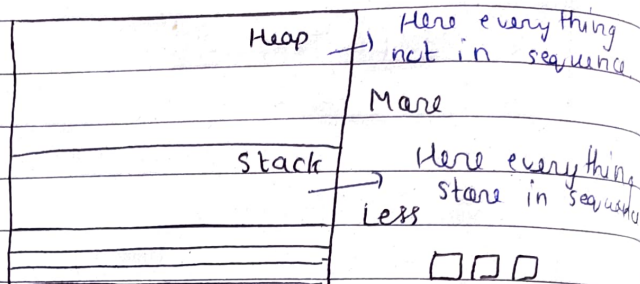 Heap
Here everything
not in sequence
More
Stack
Here everything
store in sequence
Less